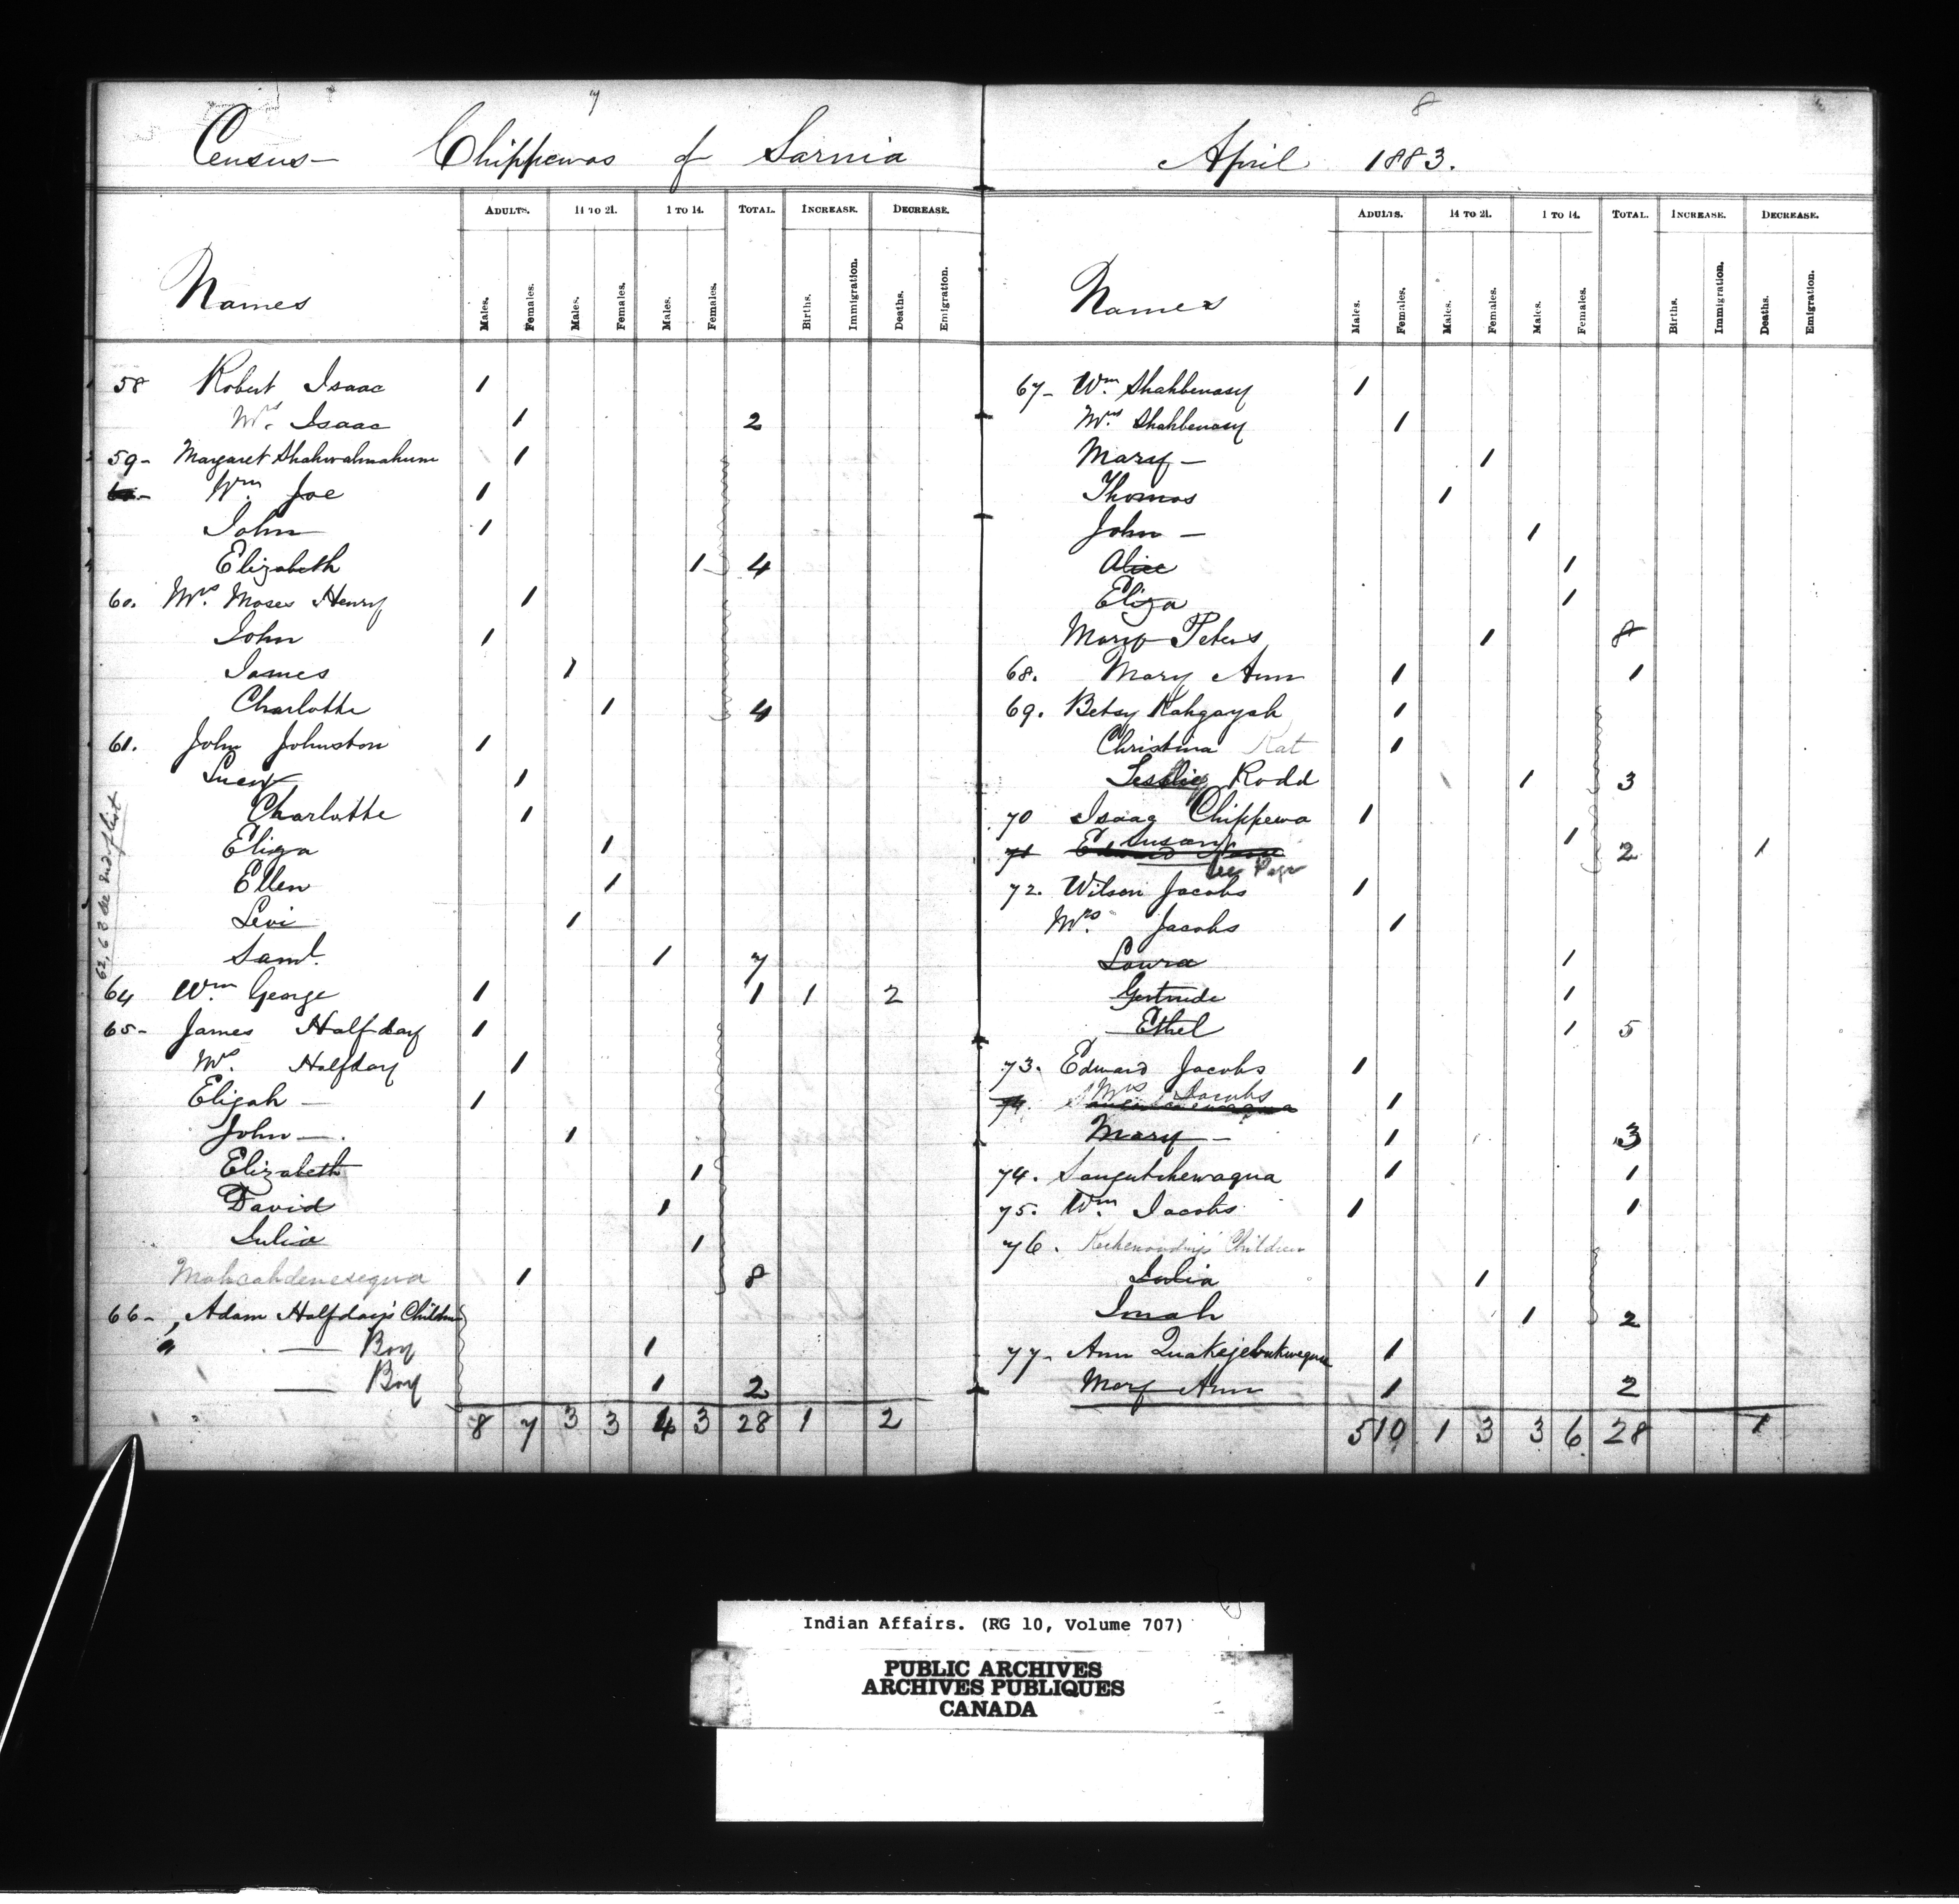 7
Census — Chippewas of Sarnia
ADULTS. 14 TO 21. 1 TO 14. TOTAL. INCREASE. DECREASE.
Names Males. Females. Males. Females. Males. Females. Births. Immigration. Deaths. Emigration.
58 Robert Isaac 1
Mrs. Isaac 1 2
59- Margaret Shahwahmahum 1
Wm Joe 1
John 1
Elizabeth 1 4
60. Mrs. Moses Henry 1
John 1
James 1
Charlotte 1 4
61. John Johnston 1
Lucy 1
Charlotte 1
Eliza 1
Ellen 1
Levi 1
Saml. 1 7
62, 63 see end of list
64 Wm. George 1 1 1 2
65- James Halfday 1
Mrs. Halfday 1
Elijah — 1
John — 1
Elizabeth 1
David 1
Julia 1
Mahcahdenesequa 1 8
66- Adam Halfday's Children
— Boy 1
— Boy 1 2
8 7 3 3 4 3 28 1 2
8
April 1883.
ADULTS. 14 TO 21. 1 TO 14. TOTAL. INCREASE. DECREASE.
Names Males. Females. Males. Females. Males. Females. Births. Immigration. Deaths. Emigration.
67- Wm. Shahbenasy 1
Mrs. Shahbenasy 1
Mary — 1
Thomas 1
John — 1
Alice 1
Eliza 1
Mary Peters 1 8
68. Mary Ann 1 1
69. Betsy Kahgayah 1
Christina Kat 1
Leslie Rodd 1 3
70 Isaac Chippewa 1
71 Susan 1 2 1
See Page
72. Wilson Jacobs 1
Mrs. Jacobs 1
Laura 1
Gertrude 1
Ethel 1 5
73. Edward Jacobs 1
74. Mrs Jacobs 1
Mary — 1 3
74. Sangutchewaqua 1 1
75. Wm. Jacobs 1 1
76. Children
Julia 1
Jonah 1 2
77- Ann Quakejebukwequa 1
Mary Ann 1 2
5 10 1 3 3 6 28 1
Indian Affairs. (RG 10, Volume 707)
PUBLIC ARCHIVES
ARCHIVES PUBLIQUES
CANADA